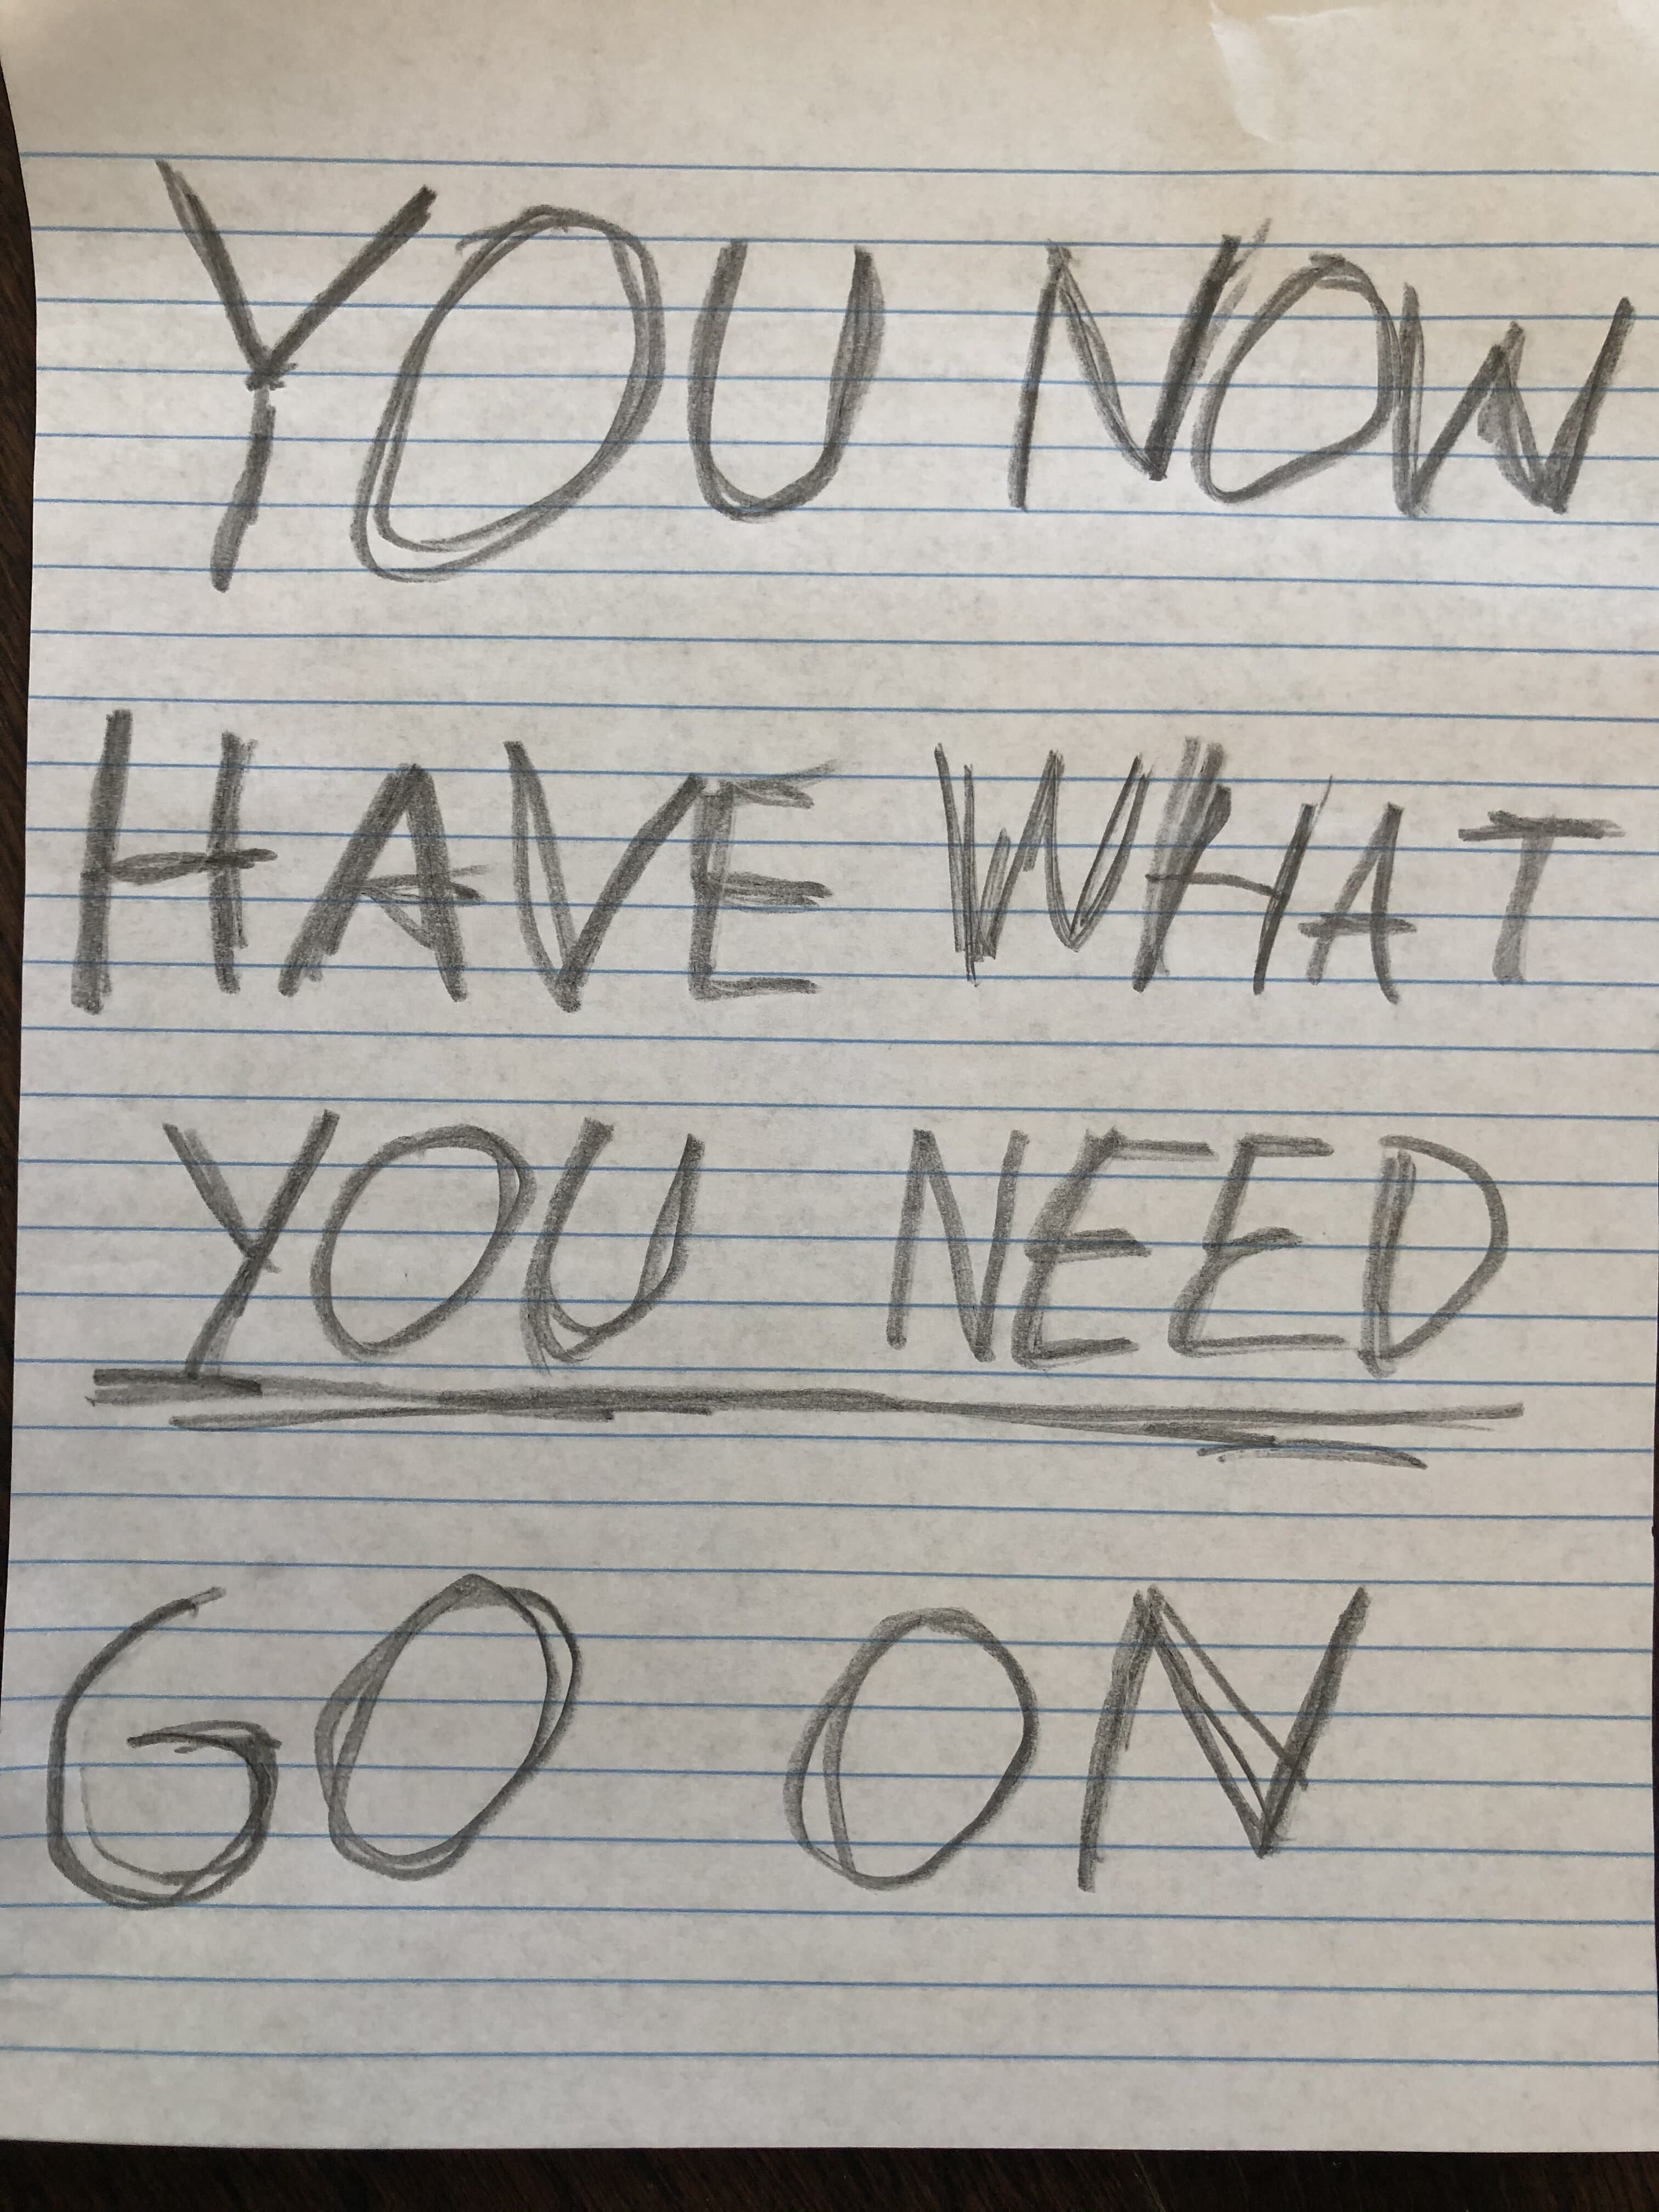 YOU NOW
HAVE WHAT
YOU NEED
GO ON